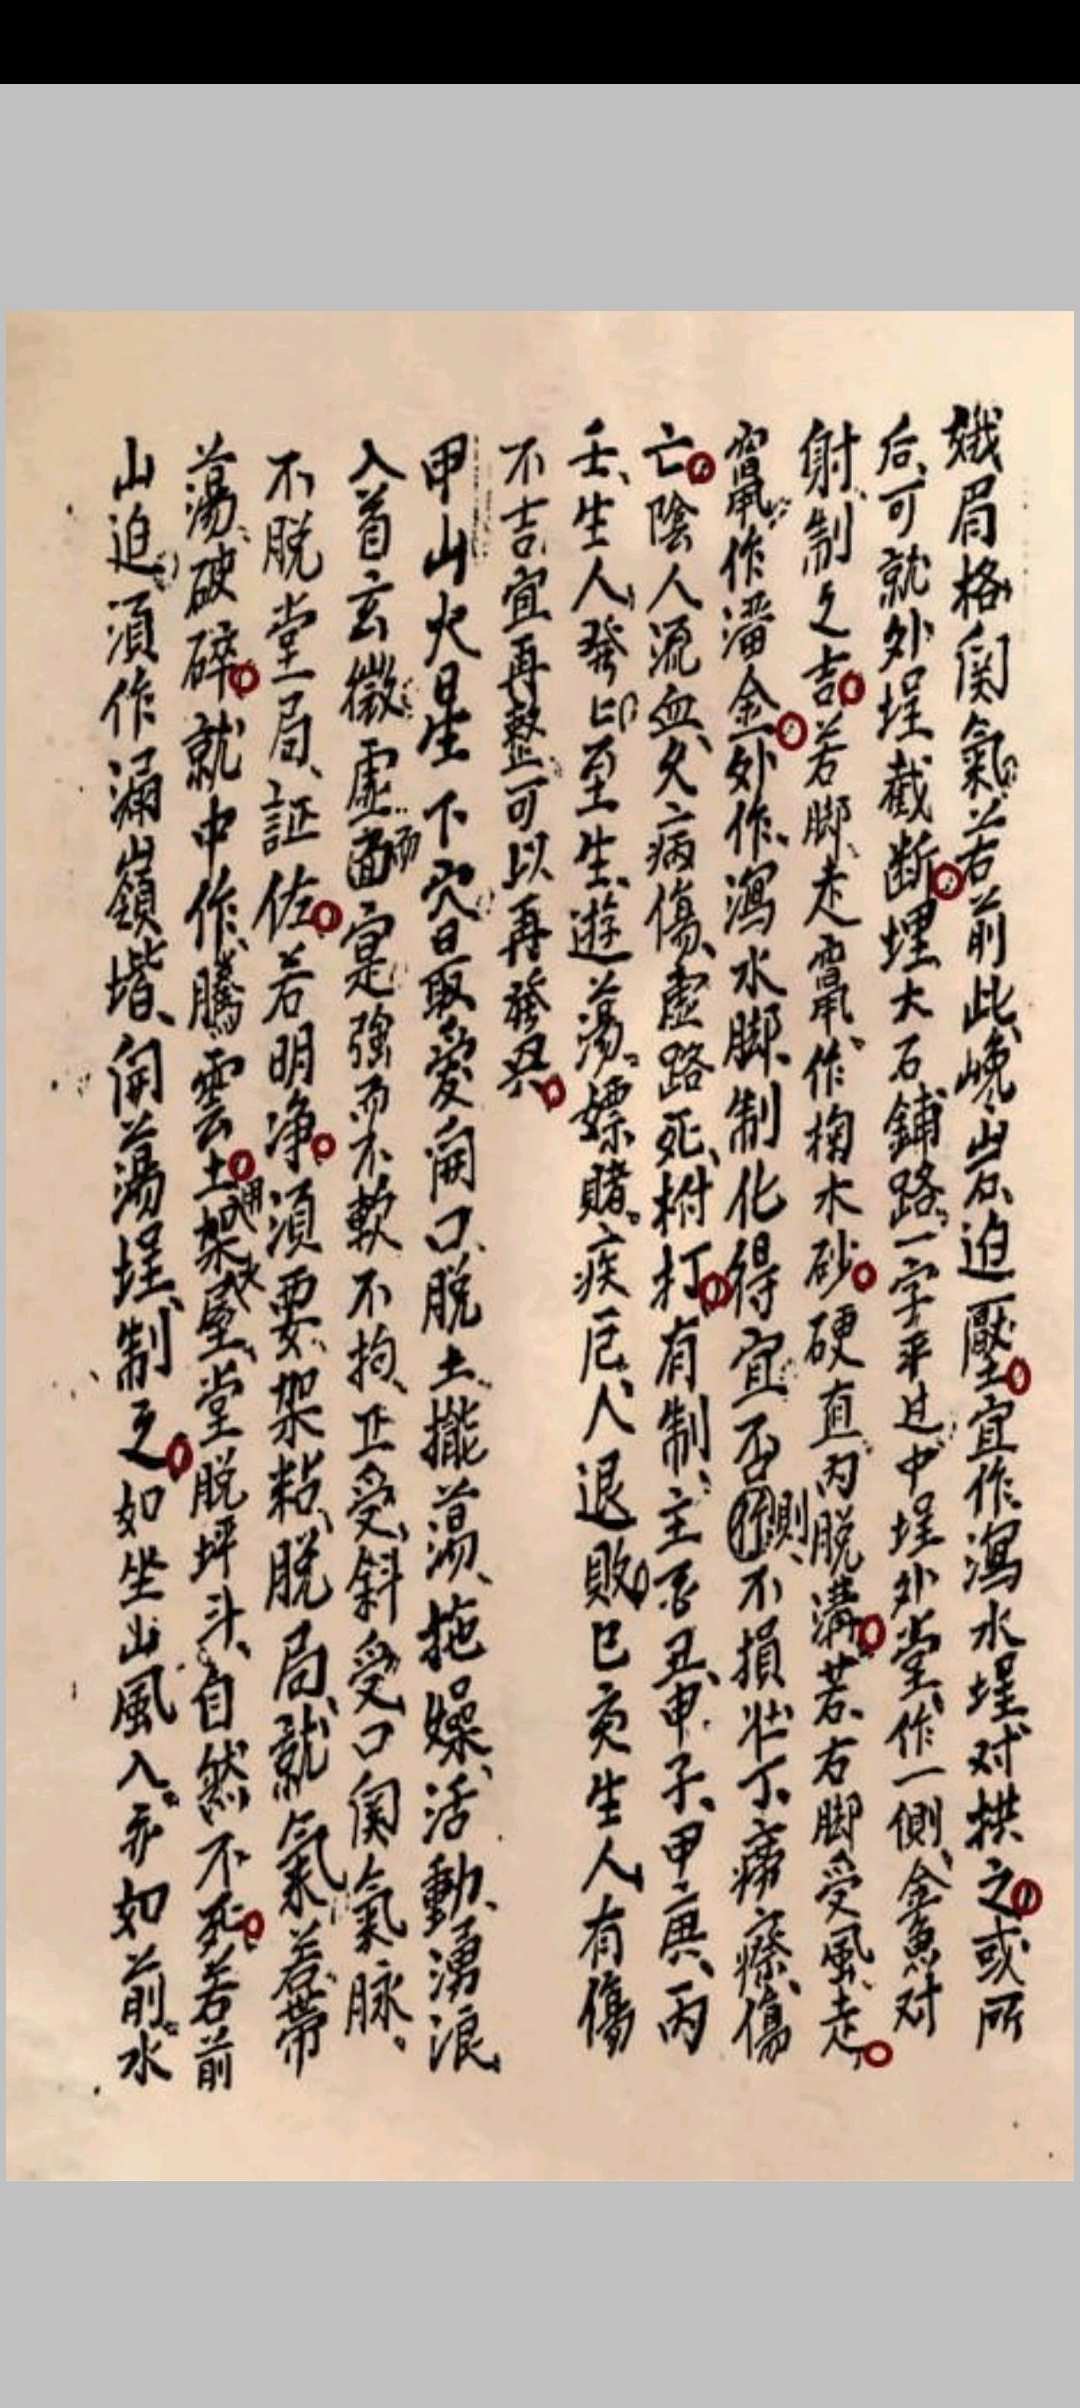 娥眉格関氣若前此巉岩迫壓宜作瀉水埕对拱之或所
后可就外埕截断埋大石鋪路一字平过中埕外堂作一側金魚对
射制之吉若脚走竄作掬木砂硬直内脱溝若右脚受風走
竄作潘金外作瀉水脚制化得宜否則不損壮丁癆瘵傷
亡陰人流血久病傷虚路死柎打有制主否丑申子甲庚丙
壬生人發印至生遊蕩嫖賭疾厄人退敗巳亥生人有傷
不吉宜再整可以再發丑
甲山火星下穴星取愛開口脱土擺蕩拖嫖活動湧浪
入首玄微虚面而寔強而不軟不拘正受斜受口関氣脉
不脱堂局証佐若明浄須要架粘脱局就氣若帶
蕩破碎就中作騰雲土架用火屋堂脱坪斗自然不死若前
山迫須作漏嶺堦開蕩埕制之如坐山風入亦如前水